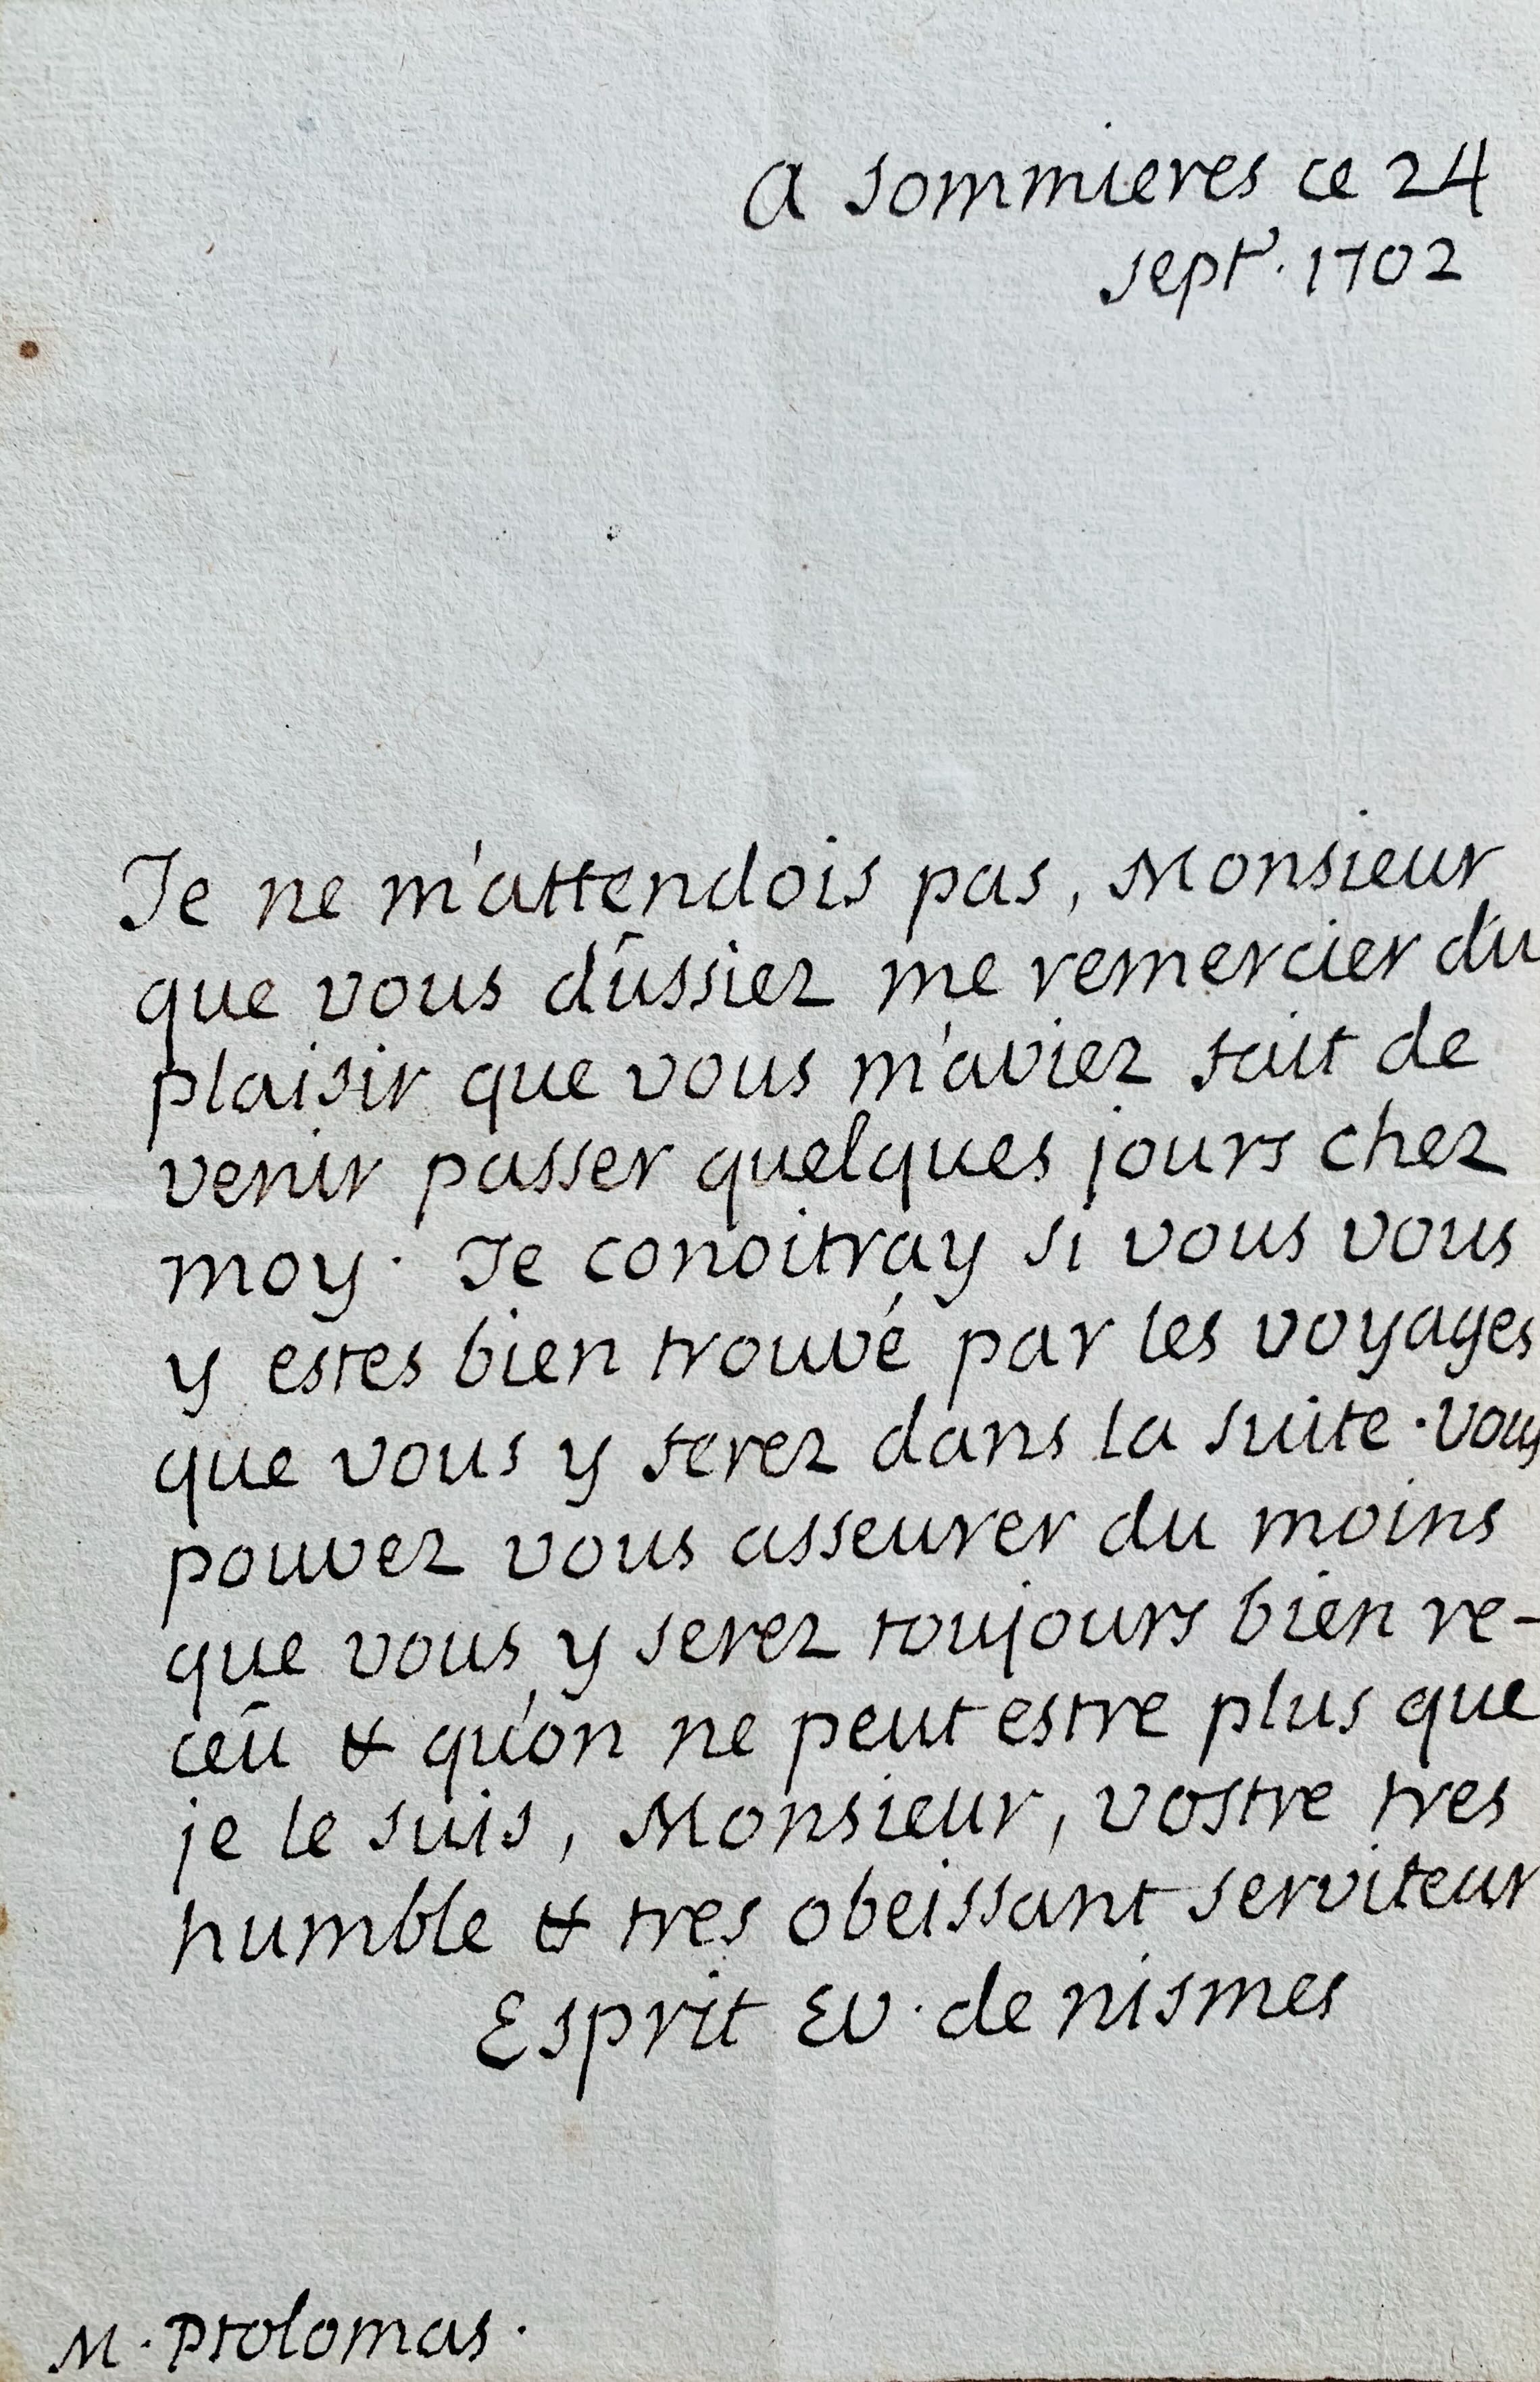 A Sommieres ce 24
sept.r 1702
Je ne m'attendois pas, Monsieur
que vous dûssiez me remercier du
plaisir que vous m'aviez fait de
venir passer quelques jours chez
moy. Je conoitray si vous vous
y estes bien trouvé par les voyages
que vous y ferez dans la suite. Vous
pouvez vous asseurer du moins
que vous y serez toujours bien re-
ceû & qu'on ne peut estre plus que
je le suis, Monsieur, vostre tres
humble & tres obeissant serviteur
Esprit Ev. de nismes
M. Ptolomas.